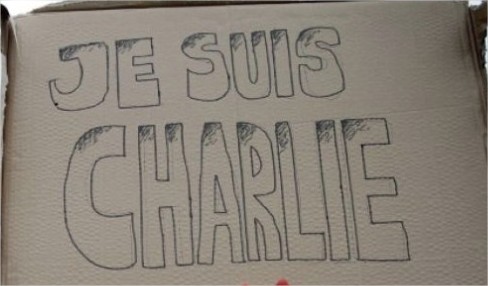 JE SUIS
CHARLIE